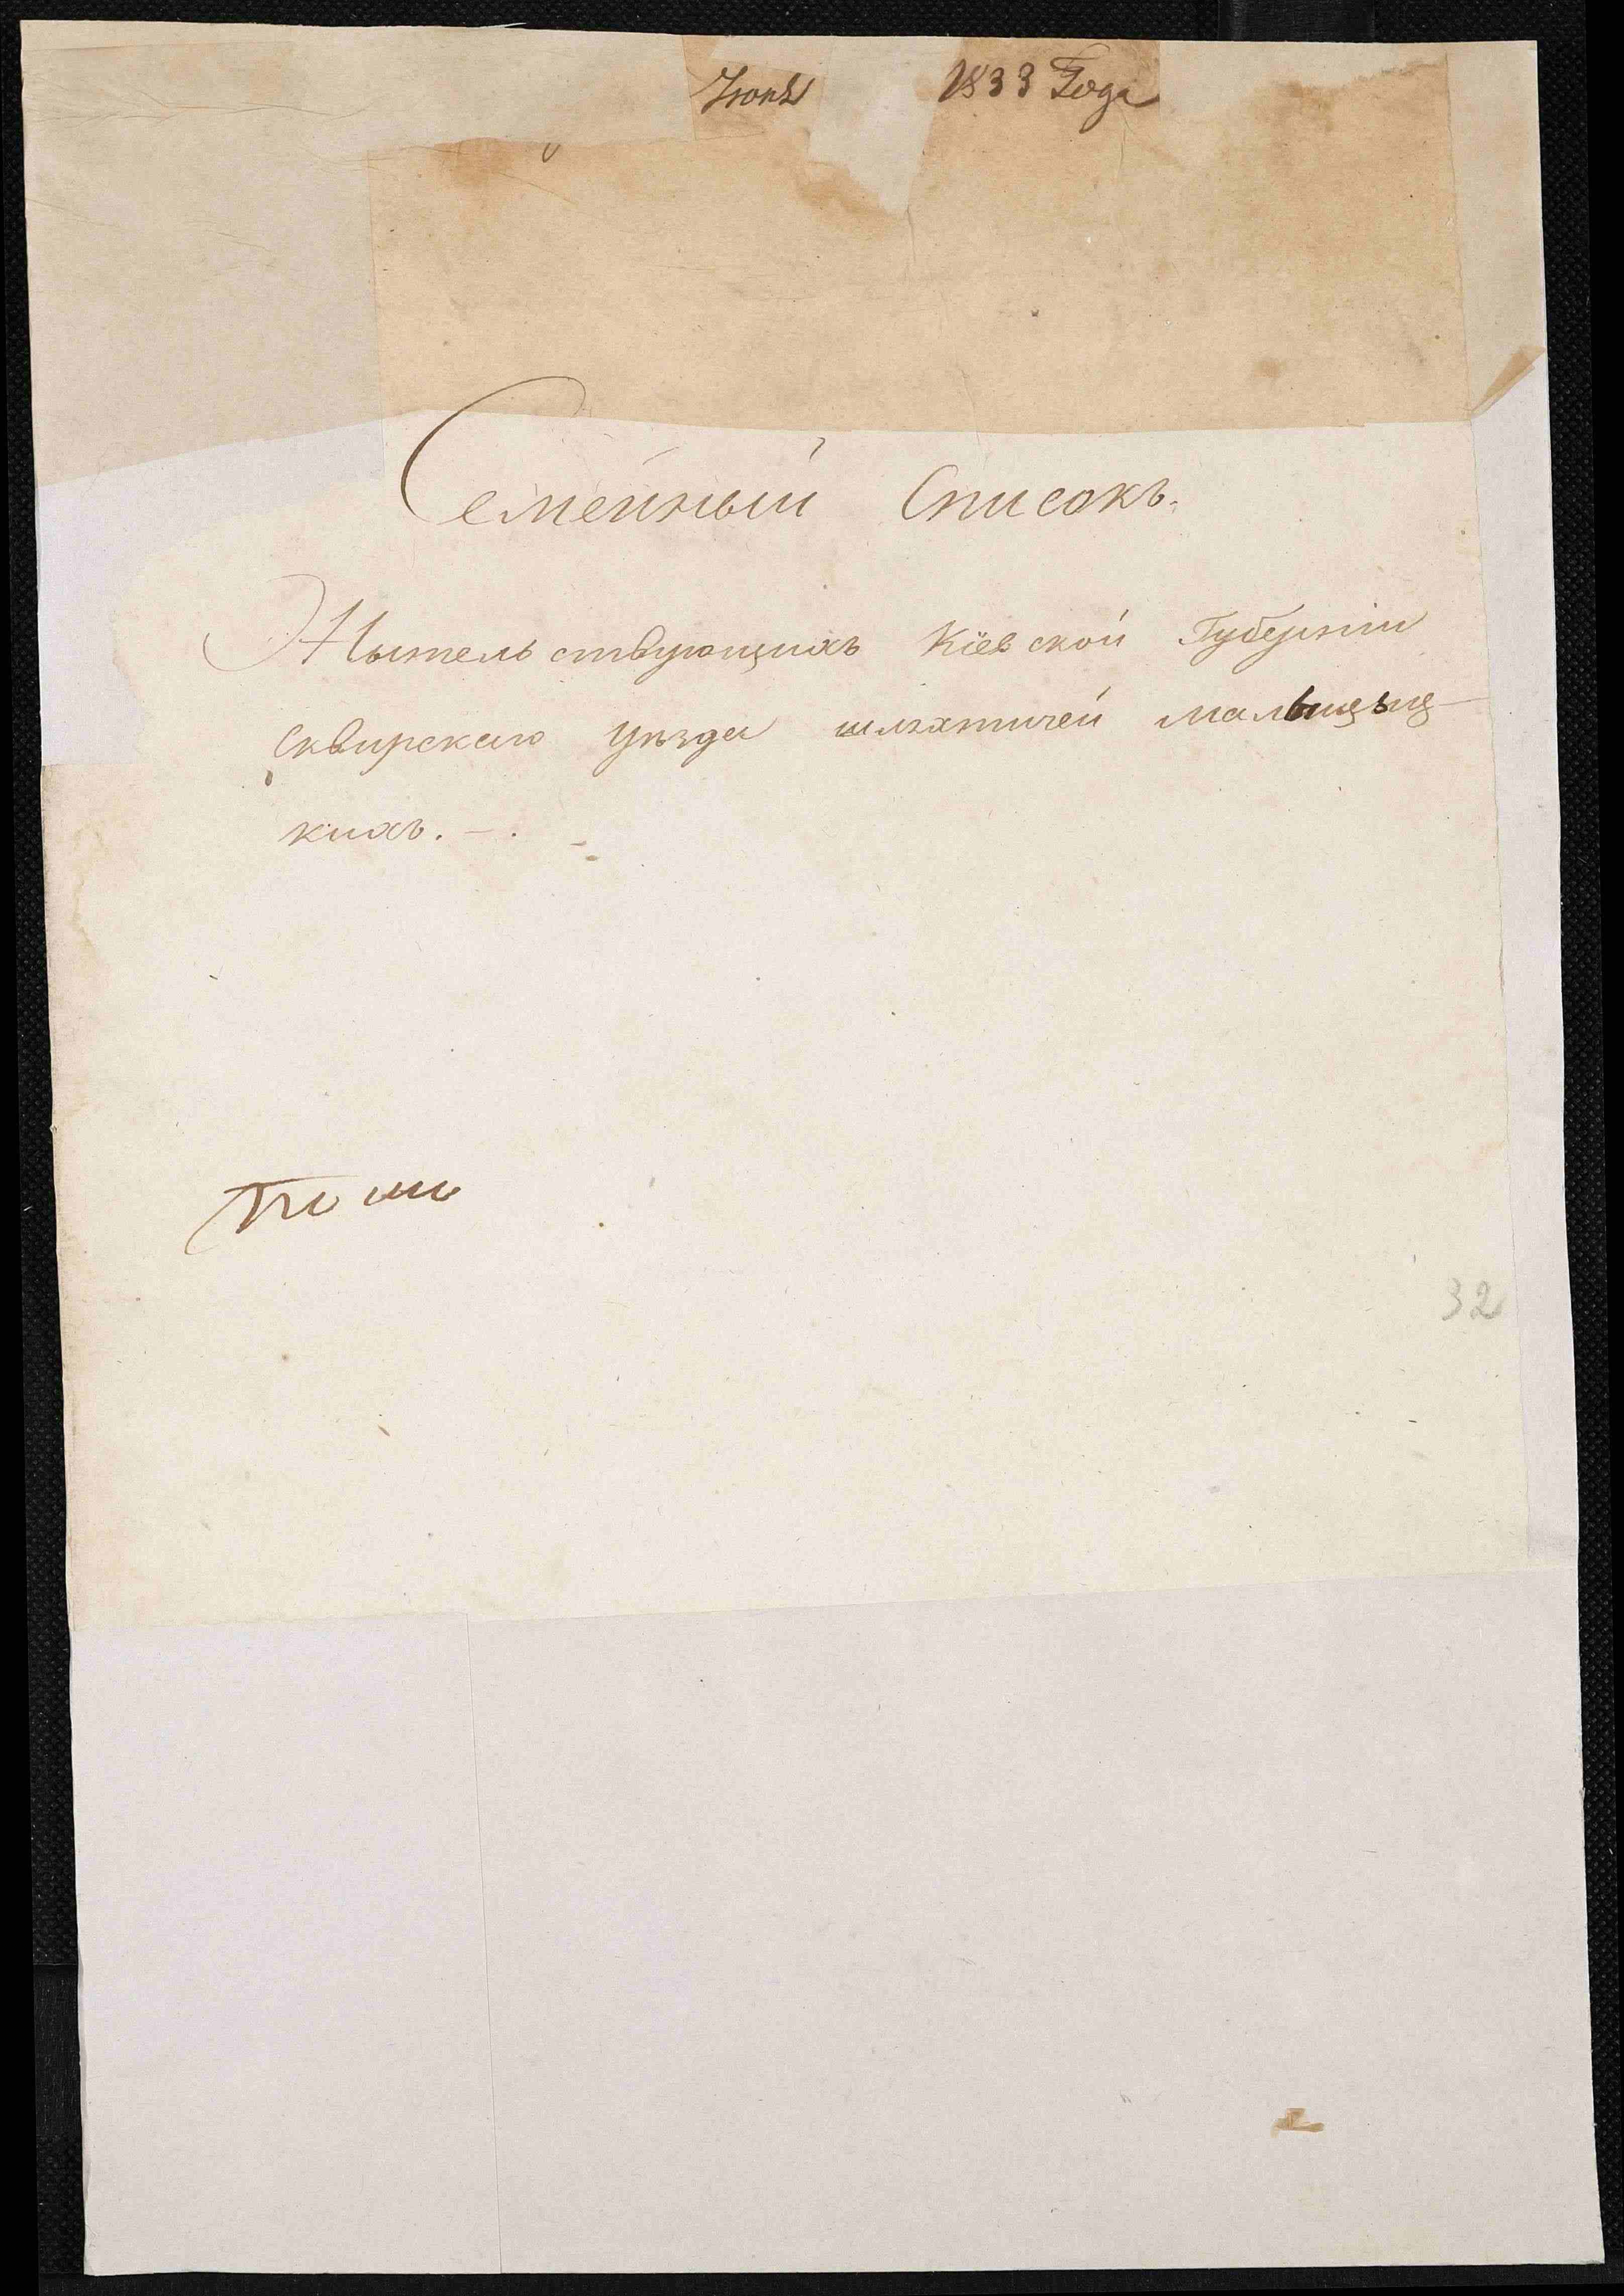 Іюня 1833 Года
Семейный Списокъ.
Жытельствующихъ Кіевской Губерніи
Сквирскаго уѣзда шляхтичей Мальıцыц-
кихъ. - .
32